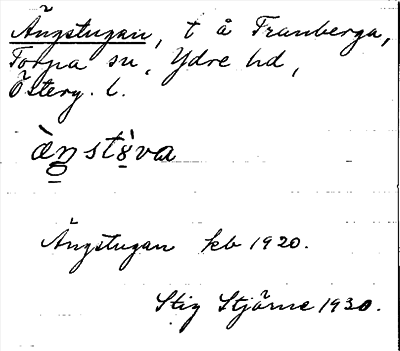 Ängstugan, t å Franberga,
Torpa sn, Ydre hd,
Österg. l.
ä̀ŋstꞷ̀va
Ängstugan kb 1920.
Stig Stjärne 1930.